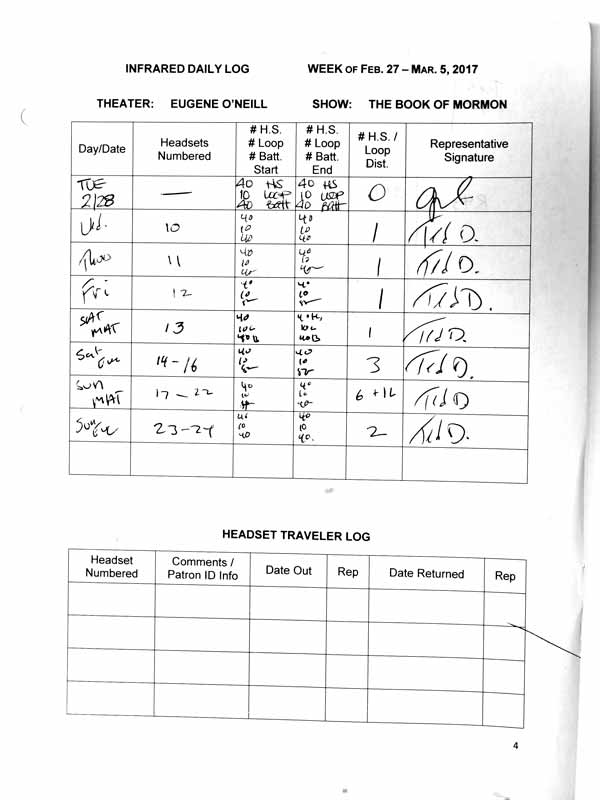 INFRARED DAILY LOG WEEK OF FEB. 27 – MAR. 5, 2017
THEATER: EUGENE O'NEILL SHOW: THE BOOK OF MORMON
Day/Date
Headsets
Numbered
# H.S.
# Loop
# Batt.
Start
# H.S.
# Loop
# Batt.
End
# H.S. /
Loop
Dist.
Representative
Signature
TUE
2/28
—
40 HS
10 LOOP
40 BATT
40 HS
10 LOOP
40 BATT
0
10
40
10
40
40
10
40
1
Ted D.
11
40
10
40
10
1
Ted D.
Fri
12
40
10
40
10
1
Ted D.
SAT
MAT
13
40
10L
40B
40H
10L
40B
1
Ted D.
Sat
Eve
14-16
40
10
40
10
3
Ted D.
SUN
MAT
17-22
40
10
40
10
6 + 1L
Ted D
Sun
Eve
23-24
10
40
40
10
40.
2
Ted D.
HEADSET TRAVELER LOG
Headset
Numbered
Comments /
Patron ID Info
Date Out
Rep
Date Returned
Rep
4